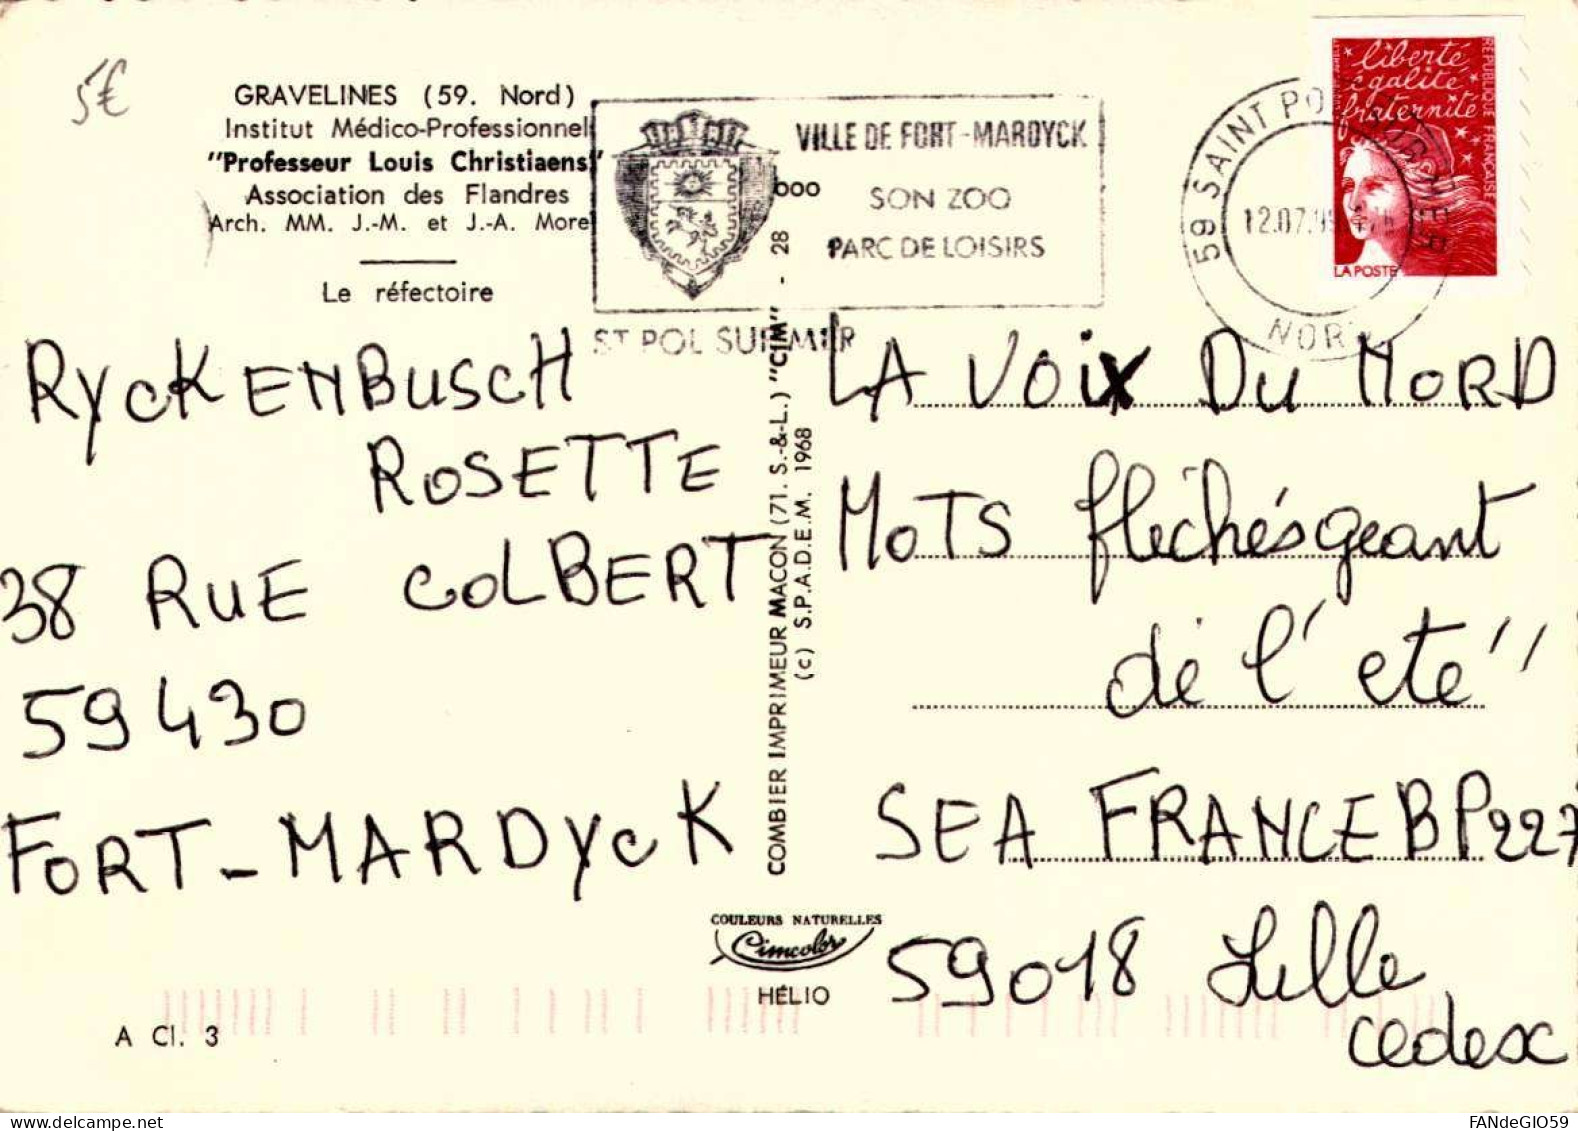 5€
GRAVELINES (59. Nord)
Institut Médico-Professionnel
"Professeur Louis Christiaens"
Association des Flandres
Arch. MM. J.-M. et J.-A. Morel
Le réfectoire
VILLE DE FORT-MARDYCK
SON ZOO
PARC DE LOISIRS
ST POL SUR MER
59 SAINT POL SUR MER
12.07.9
NORD
liberté
égalité
fraternité
RÉPUBLIQUE FRANÇAISE
LA POSTE
RYCKENBUSCH
ROSETTE
38 RUE COLBERT
59430
FORT-MARDYCK
COMBIER IMPRIMEUR MACON (71. S.-&-L.) "CIM" - 28
000
(c) S.P.A.D.E.M. 1968
LA VOIX DU NORD
MOTS fléchésgeant
dé l'eté"
SEA FRANCE BP227
59018 Lille
cedex
COULEURS NATURELLES
Cimcolor
HÉLIO
A Cl. 3
FANdeGIO59